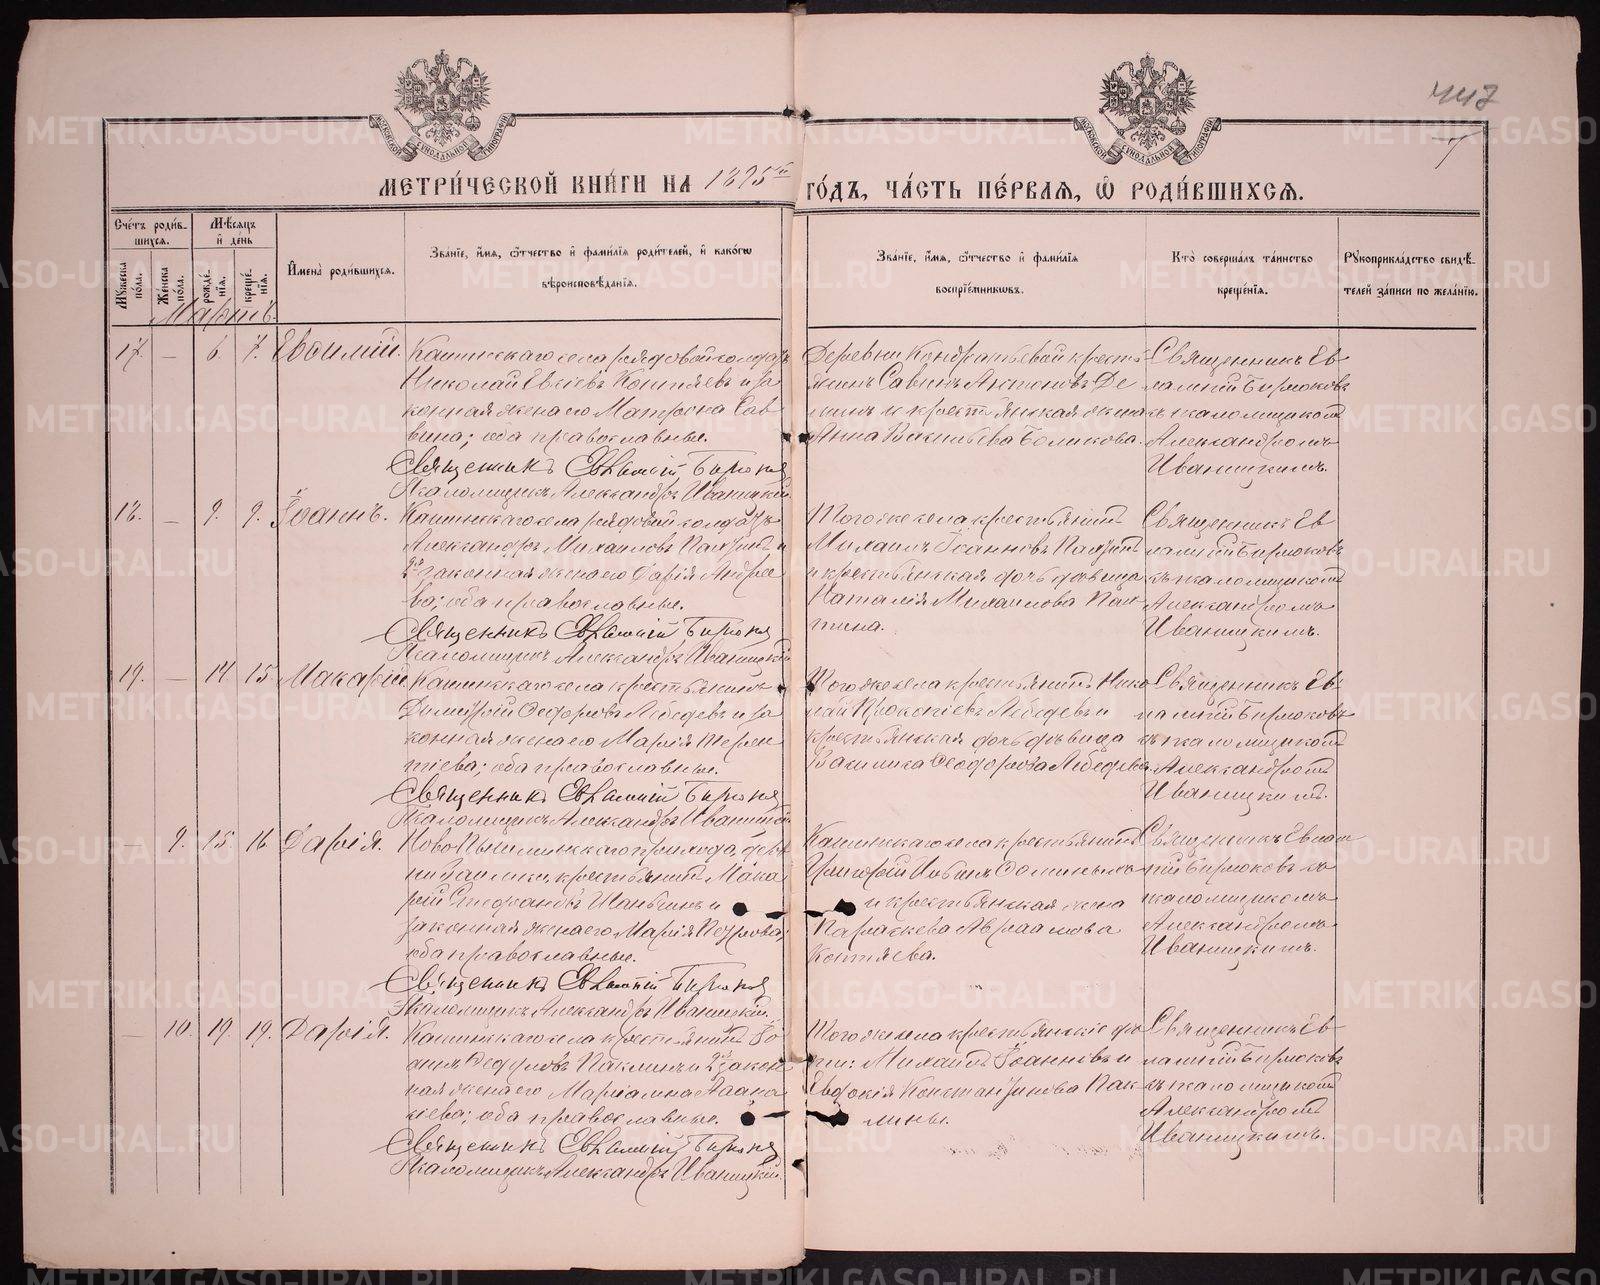 447
МОСКОВСКОЙ СѴНОДАЛЬНОЙ ТИПОГРАФІИ
МОСКОВСКОЙ СѴНОДАЛЬНОЙ ТИПОГРАФІИ
МЕТРИ́ЧЕСКОЙ КНИ́ГИ НА 1895й ГО́ДЪ, ЧА́СТЬ ПЕ́РВАѦ, Ѡ҆ РОДИ́ВШИХСѦ.
Сче́тъ роди́в-
шихсѧ.
Мꙋжеска по́ла.
Же́нска по́ла.
Мѣ́сѧцъ
и҆ де́нь
рожде́-
нїѧ.
креще́-
нїѧ.
И҆мена̀ роди́вшихсѧ.
Зва́нїе, и҆́мѧ, ѻ҆́тчество и҆ фами́лїѧ роди́телей, и҆ како́гѡ
вѣроисповѣ́данїѧ.
Зва́нїе, и҆́мѧ, ѻ҆́тчество и҆ фами́лїѧ
воспрїе́мникѡвъ.
Кто̀ соверша́лъ та́инство
креще́нїѧ.
Рꙋкоприкла́дство свидѣ́-
телей за́писи по жела́нїю.
Мартъ.
17. – 6. 7. Евѳимій.
Кашинскаго села рядовой солдатъ
Николай Евсіевъ Контяевъ и за
конная жена его Матрона Сав
вина; оба православные.
Священникъ Евлампій Бирюков
Псаломщикъ Александръ Иваницкій.
Деревни Кондратьевой кресть
янинъ Савинъ Антоновъ Де
минъ и крестьянская жена
Анна Васильева Боликова.
Священникъ Ев
лампій Бирюковъ
съ псаломщикомъ
Александромъ
Иваницкимъ.
18. – 9. 9. Іоаннъ.
Кашинскаго села рядовой солдатъ
Александръ Михаиловъ Пахтинъ и
2я законная жена его Дарія Андрее
ва; оба православные.
Священникъ Евлампій Бирюков
Псаломщикъ Александръ Иваницкій
Тогоже села крестьянинъ
Михаилъ Іоанновъ Пахтинъ
и крестьянская дочь дѣвица
Наталія Михаилова Пах
тина.
Священникъ Ев
лампій Бирюковъ
съ псаломщикомъ
Александромъ
Иваницкимъ.
19. – 14. 15. Макарій.
Кашинскаго села крестьянинъ
Димитрій Ѳедоровъ Лебедевъ и за
конная жена его Марія Терен
тіева; оба православные.
Священникъ Евлампій Бирюков
Псаломщикъ Александръ Иваницкій
Тогоже села крестьянинъ Нико
лай Прокопіевъ Лебедевъ и
крестьянская дочь дѣвица
Василиса Ѳеодорова Лебедева
Священникъ Ев
лампій Бирюковъ
съ псаломщикомъ
Александромъ
Иваницкимъ.
– 9. 15. 16. Дарія.
Ново Пышминскаго прихода, дерев
крестьянинъ Мака
рій Стефановъ Шаньгинъ и
законная жена его Марія Петрова;
оба православные.
Священникъ Евлампій Бирюков
Псаломщикъ Александръ Иваницкій.
Кашинскаго села крестьянинъ
Григорій
и крестьянская жена
Параскева Авраамова
Контяева.
Священникъ Евлам
пій Бирюковъ съ
псаломщикомъ
Александромъ
Иваницкимъ.
– 10. 19. 19. Дарія.
Кашинскаго села крестьянинъ Іо
аннъ Ѳедоровъ Паклинъ и 2я закон
ная жена его Маріамна Аѳана
сіева; оба православные.
Священникъ Евлампій Бирюков
Псаломщикъ Александръ Иваницкій.
Тогоже села крестьянскіе дѣ
ти: Михаилъ Іоанновъ и
Евдокія Константинова Пак
лины.
Священникъ Ев
лампій Бирюковъ
съ псаломщикомъ
Александромъ
Иваницкимъ.
METRIKI.GASO-URAL.RU